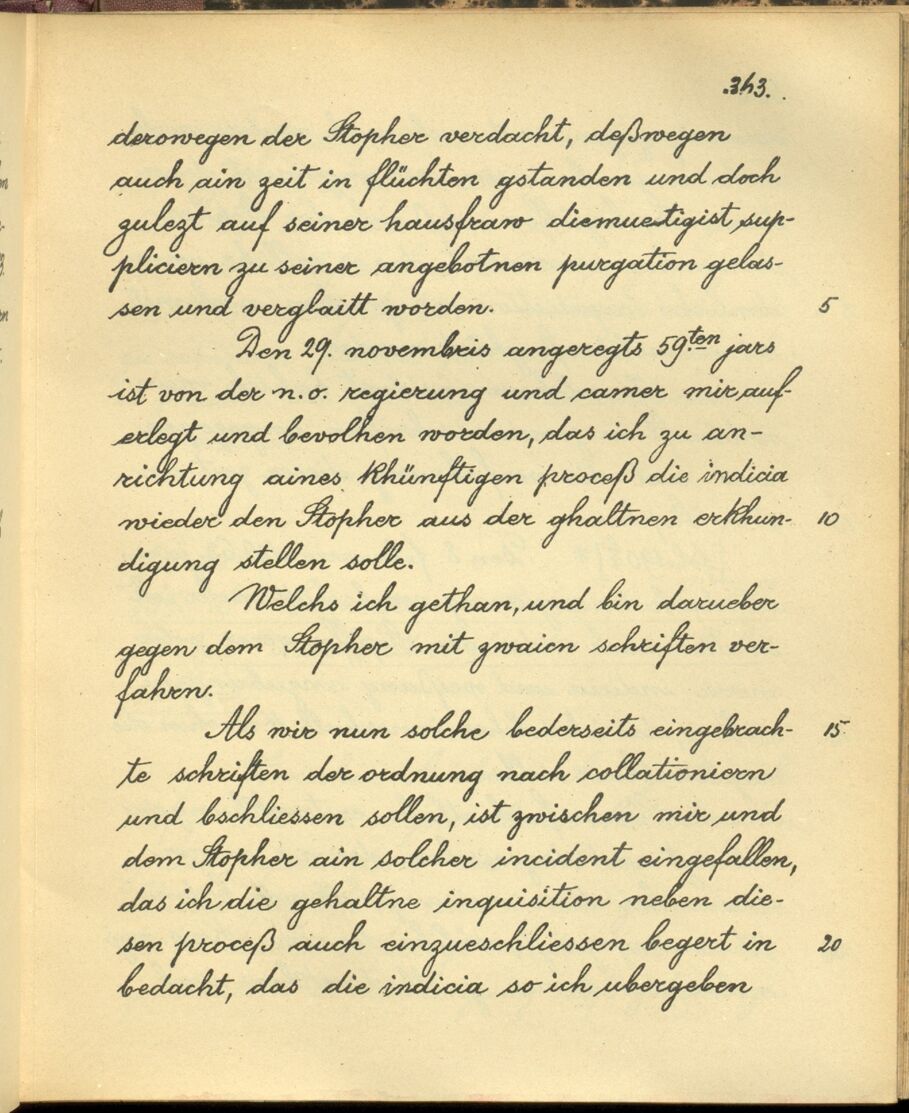 .343.
derowegen der Stopher verdacht, deßwegen
auch ain zeit in flüchten gstanden und doch
zulezt auf seiner hausfraw diemuetigist sup-
pliciern zu seiner angebotnen purgation gelas-
sen und verglaitt worden. 5
Den 29. novembris angeregts 59.ten jars
ist von der n. o. regierung und camer mir auf-
erlegt und bevolhen worden, das ich zu an-
richtung aines khünftigen proceß die indicia
wieder den Stopher aus der ghaltnen erkhun- 10
digung stellen solle.
Welchs ich gethan, und bin darueber
gegen dem Stopher mit zwaien schriften ver-
fahrn.
Als wir nun solche bederseits eingebrach- 15
te schriften der ordnung nach collationiern
und bschliessen sollen, ist zwischen mir und
dem Stopher ain solcher incident eingefallen,
das ich die gehaltne inquisition neben die-
sen proceß auch einzueschliessen begert in 20
bedacht, das die indicia so ich ubergeben